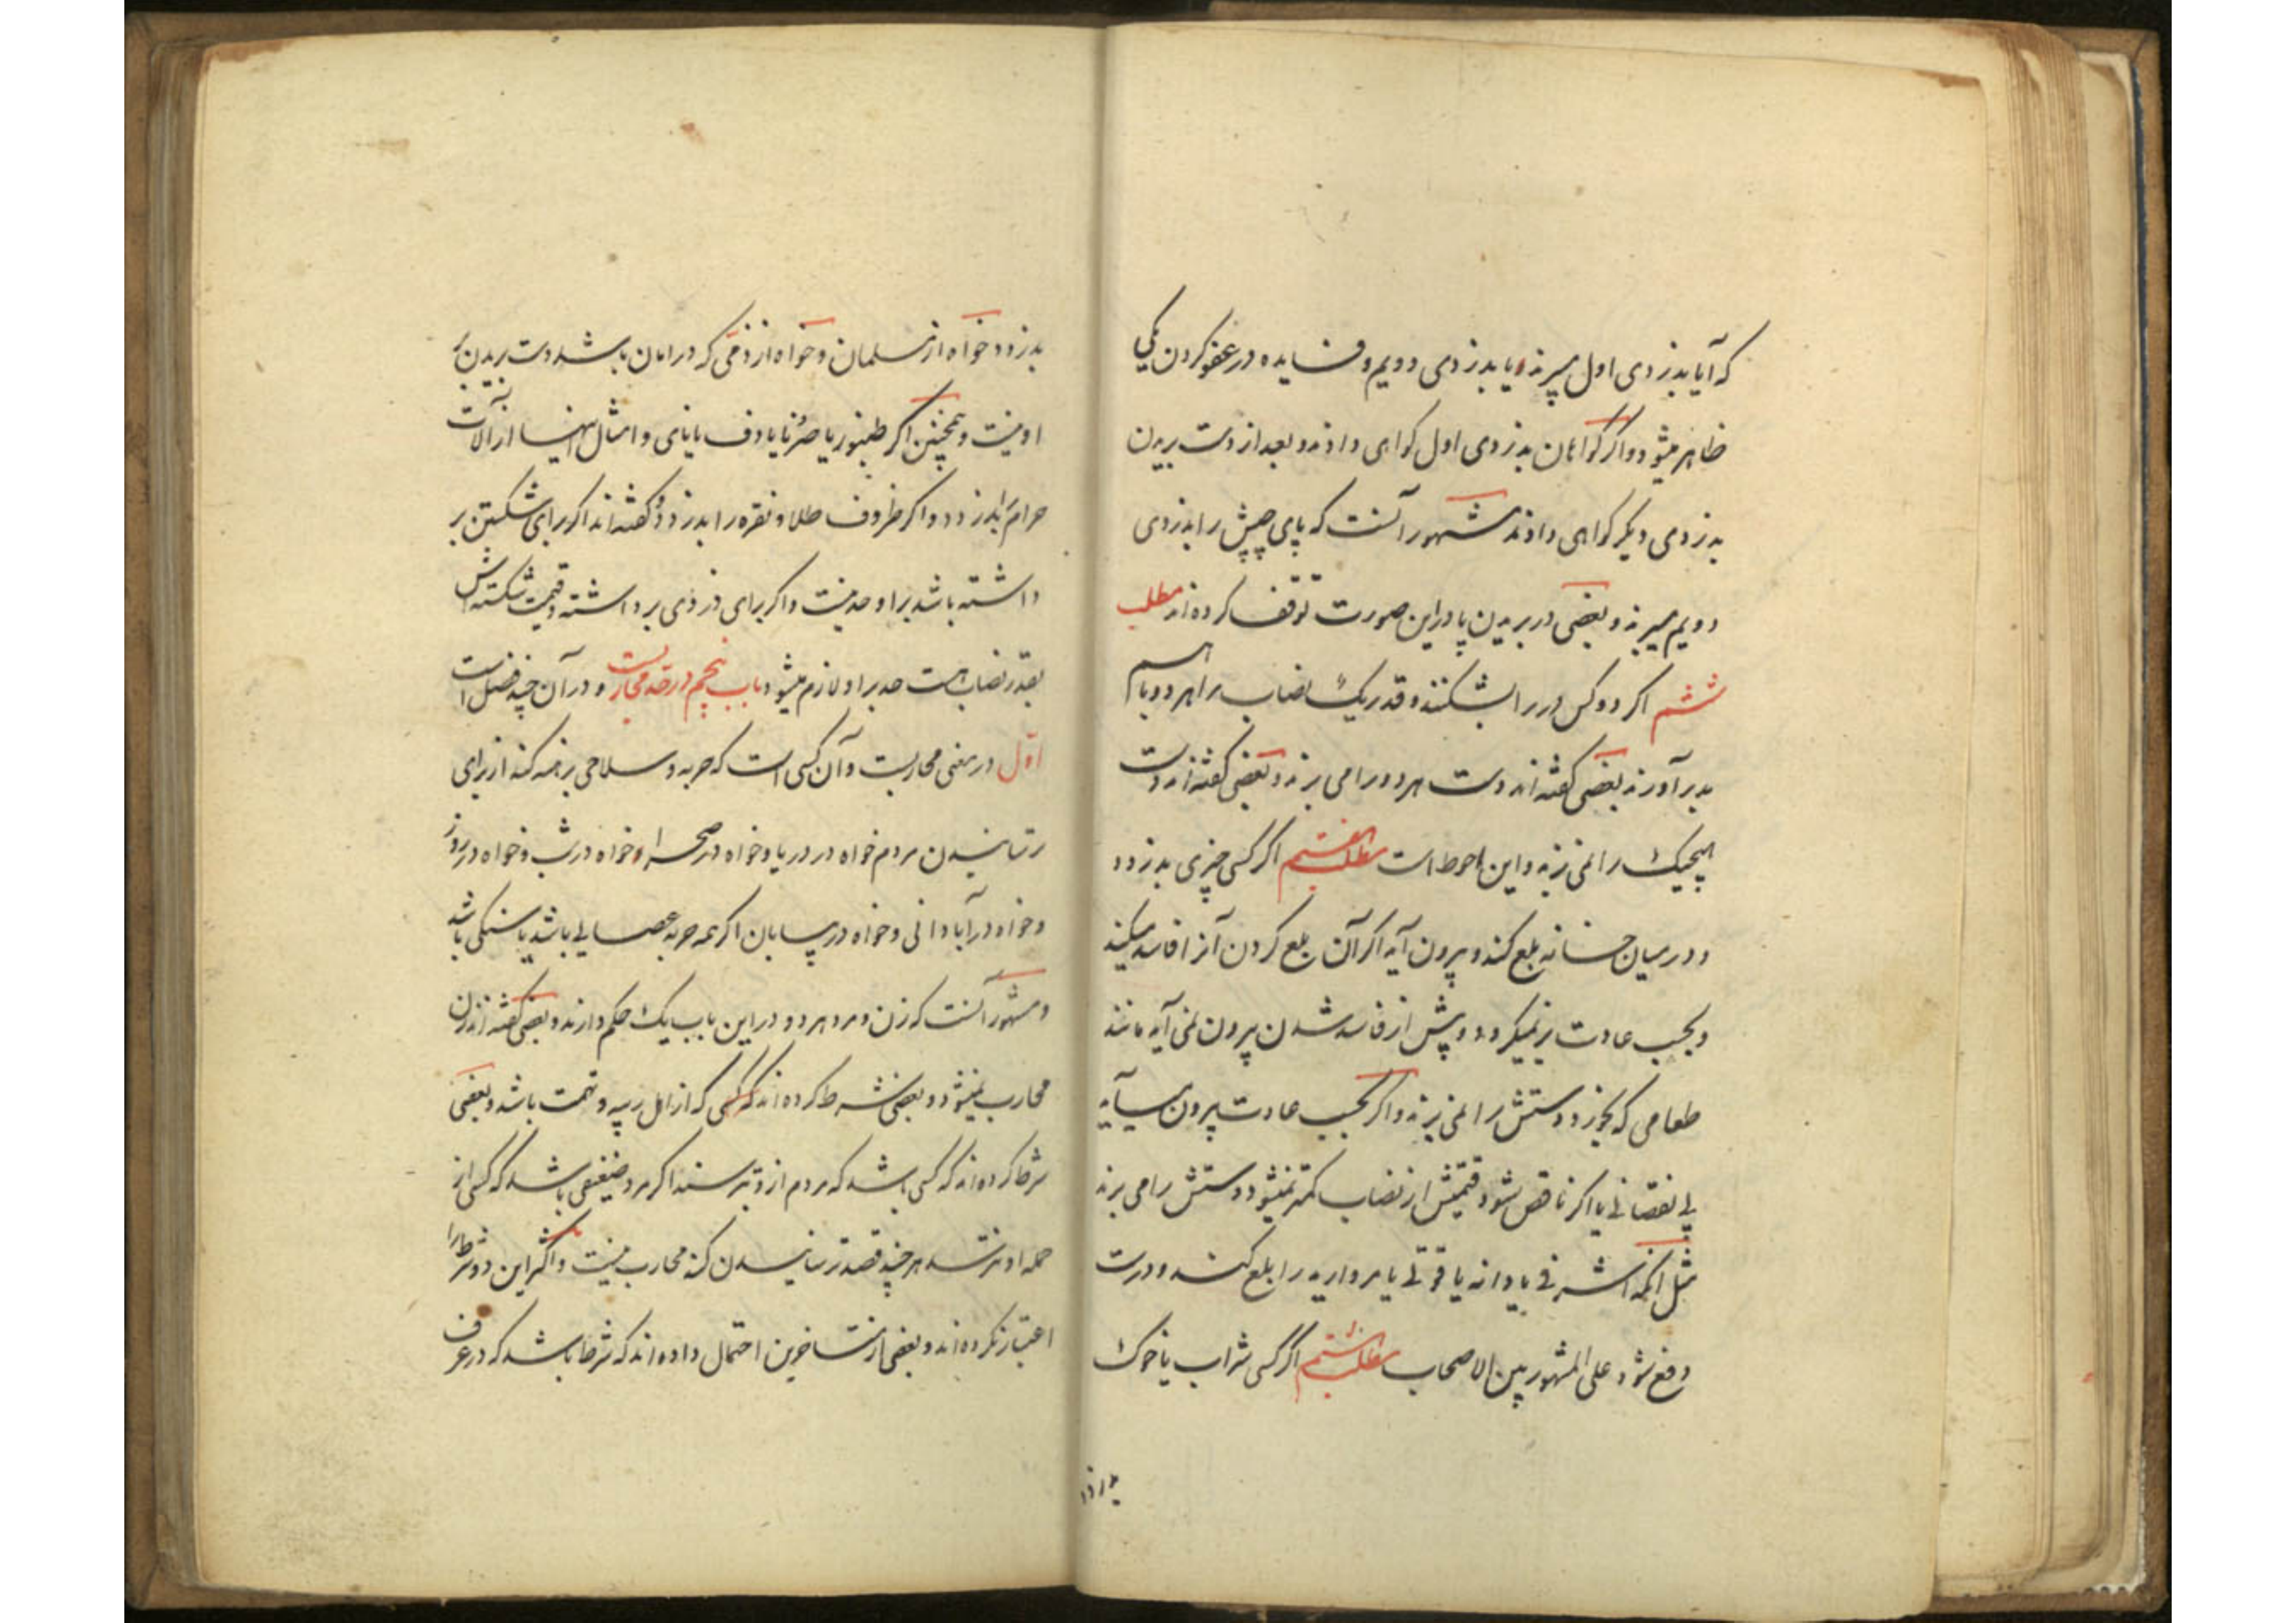 که آیا بدزدی اول میبرند یا بدزدی دویم و فایده در عفو کردن یکی
ظاهر میشود و اگر گواهان بدزدی اول گواهی دادند و بعد از دست بریدن
بدزدی دیگر گواهی دادند مشهور آنست که پای چپش را بدزدی
دویم میبرند و بعضی در بریدن پا در این صورت توقف کرده‌اند مطلب
ششم اگر دو کس در را بشکنند و قدر یک نصاب را هر دو باهم
بدر آورند بعضی گفته‌اند دست هر دو را می برند و بعضی گفته‌اند دست
هیچیک را نمی برند و این احوط است مطلب هفتم اگر کسی چیزی بدزدد
و در میان خانه بلع کند و بیرون آید اگر آن بلع کردن آنرا فاسد میکند
و بحسب عادت بر نمیگردد و پیش از فاسد شدن بیرون نمی آید مانند
طعامی که بخورد دستش را نمی برند و اگر بحسب عادت بیرون می آید
بی نقصانی یا اگر ناقص شود قیمتش از نصاب کمتر نمیشود دستش را می برند
مثل آنکه اشرفی یا دانه یاقوتی یا مروارید را بلع کند و درست
دفع شود علی المشهور بین الاصحاب مطلب هشتم اگر کسی شراب یا خوک
بدزدد
بدزدد خواه از مسلمان و خواه از ذمی که در امان باشد دست بریدن بر
او نیست و همچنین اگر طنبور یا صرنا یا دف یا نای و امثال اینها از آلات
حرام بدزدد و اگر ظروف طلا و نقره را بدزدد گفته‌اند اگر برای شکستن بر
داشته باشد بر او حد نیست و اگر برای دزدی برداشته و قیمت شکسته اش
بقدر نصاب هست حد بر او لازم میشود باب پنجم در حد محاربست و در آن چند فصل است
اول در معنی محاربست و آن کسی است که حربه و سلاحی برهنه کند از برای
ترسانیدن مردم خواه در دریا و خواه در صحرا و خواه در شب و خواه در روز
و خواه در آبادانی و خواه در بیابان اگر همه حربه عصایی باشد یا سنگی باشد
و مشهور آنست که زن و مرد هر دو در این باب یک حکم دارند و بعضی گفته‌اند زن
محارب نمیشود و بعضی شرط کرده‌اند که کسی که از اهل ریبه و تهمت باشد و بعضی
شرط کرده‌اند که کسی باشد که مردم از و بترسند اگر مرد ضعیفی باشد که کسی از
حمله او نترسد هر چند قصد ترسانیدن کند محارب نیست و اکثر این دو شرط را
اعتبار نکرده‌اند و بعضی از متاخرین احتمال داده‌اند که شرط باشد که در عرف